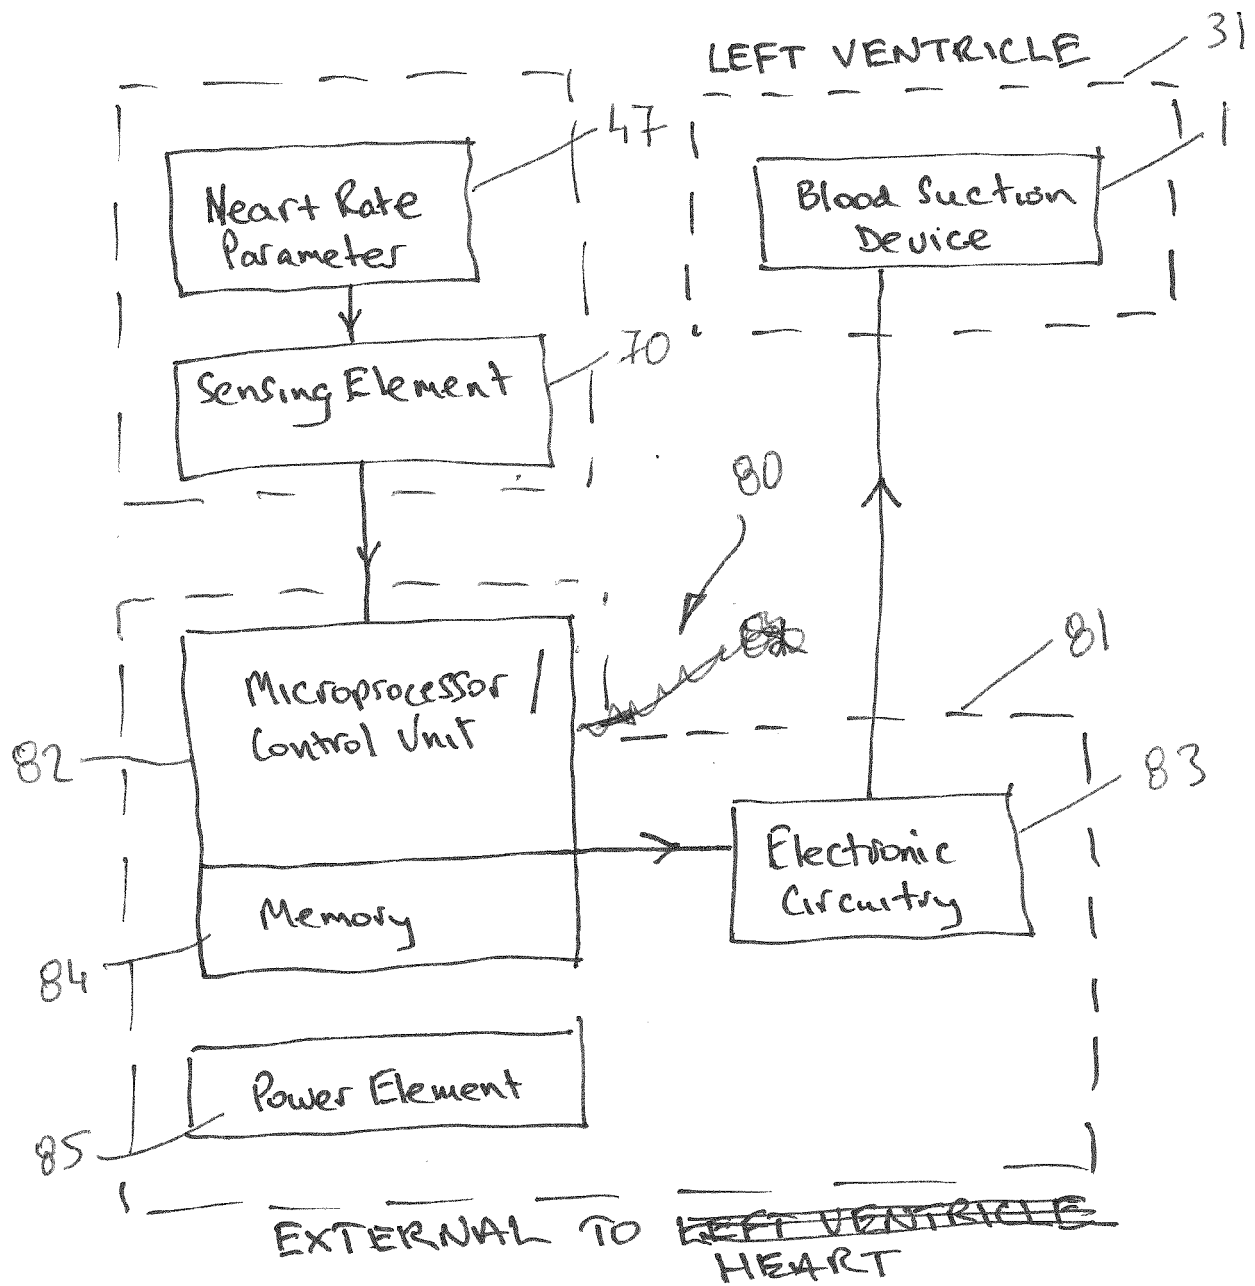 LEFT VENTRICLE
31
47
1
Heart Rate
Parameter
Blood Suction
Device
70
Sensing Element
80
81
Microprocessor /
Control Unit
82
83
Electronic
Circuitry
Memory
84
Power Element
85
EXTERNAL TO LEFT VENTRICLE
HEART